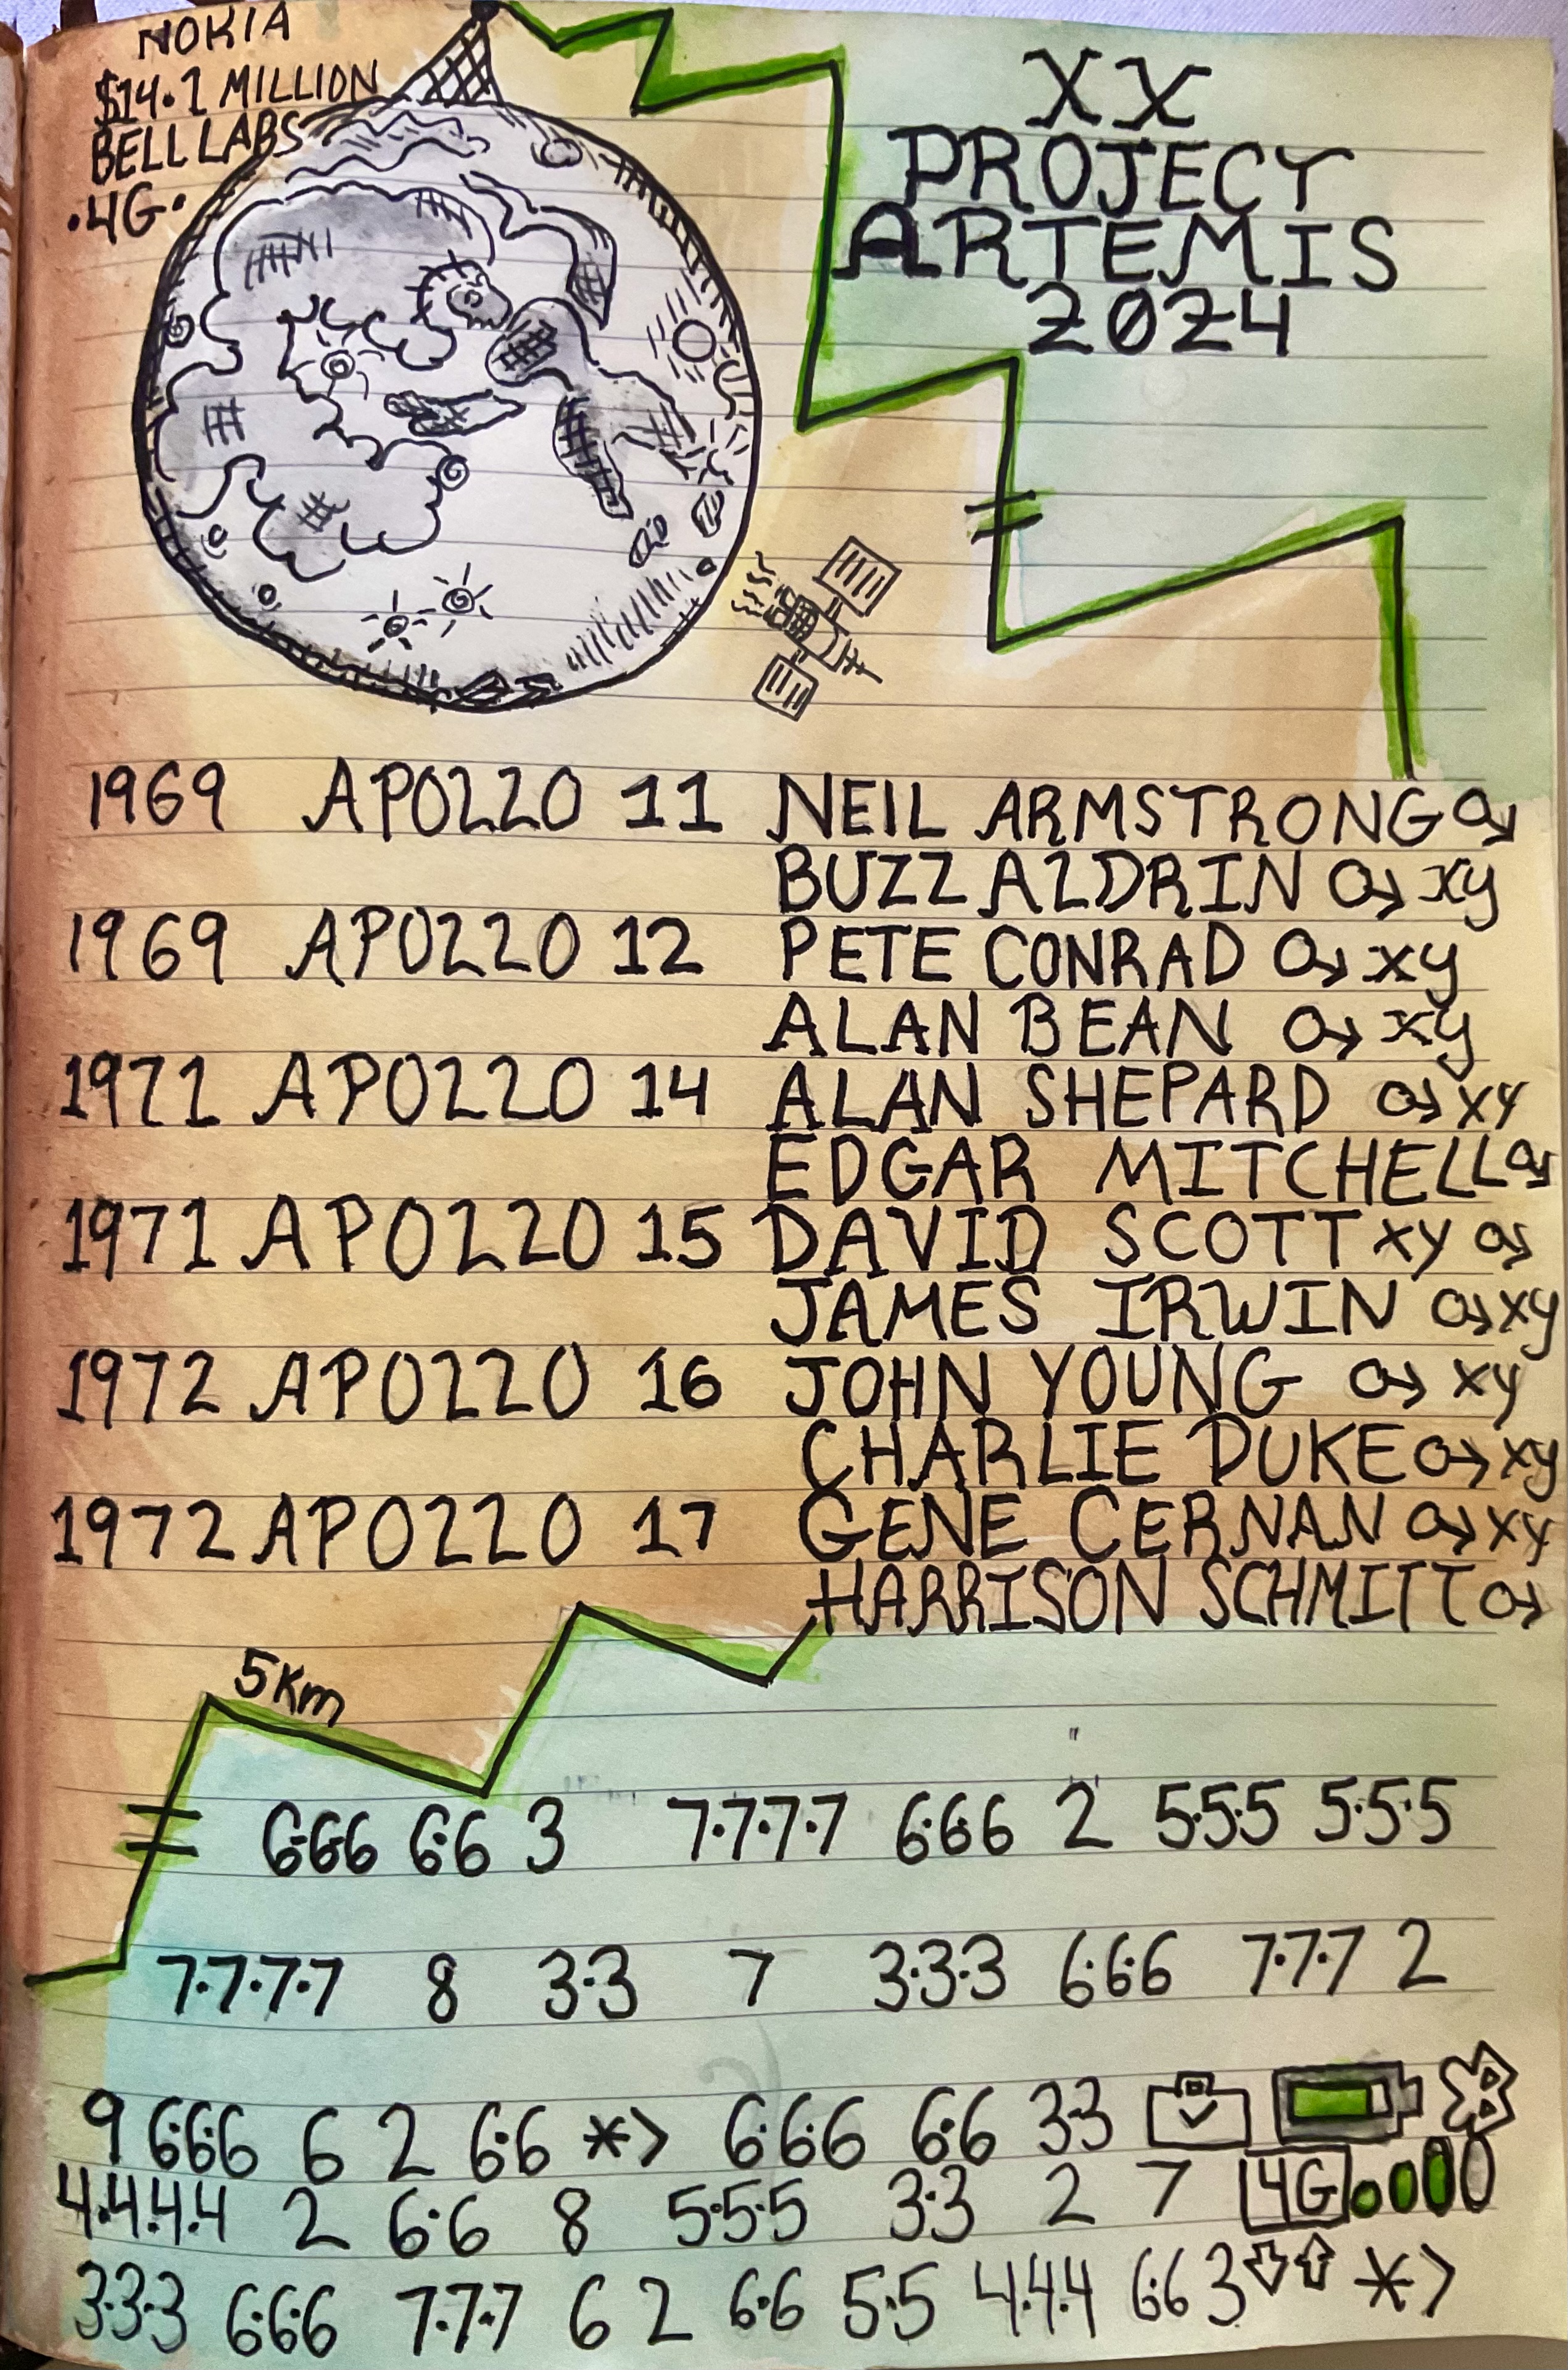 NOKIA
$14.1 MILLION
BELL LABS
.4G.
XX
PROJECT
ARTEMIS
2024
1969 APOLLO 11 NEIL ARMSTRONG
BUZZ ALDRIN xy
1969 APOLLO 12 PETE CONRAD xy
ALAN BEAN xy
1971 APOLLO 14 ALAN SHEPARD xy
EDGAR MITCHELL
1971 APOLLO 15 DAVID SCOTT xy
JAMES IRWIN xy
1972 APOLLO 16 JOHN YOUNG xy
CHARLIE DUKE xy
1972 APOLLO 17 GENE CERNAN xy
HARRISON SCHMITT
5Km
6·6·6 6·6 3 7·7·7·7 6·6·6 2 5·5·5 5·5·5
7·7·7·7 8 3·3 7 3·3·3 6·6·6 7·7·7 2
9 6·6·6 6 2 6·6 *> 6·6·6 6·6 3·3
4·4·4·4 2 6·6 8 5·5·5 3·3 2 7 4G
3·3·3 6·6·6 7·7·7 6 2 6·6 5·5 4·4·4 6·6 3 *>